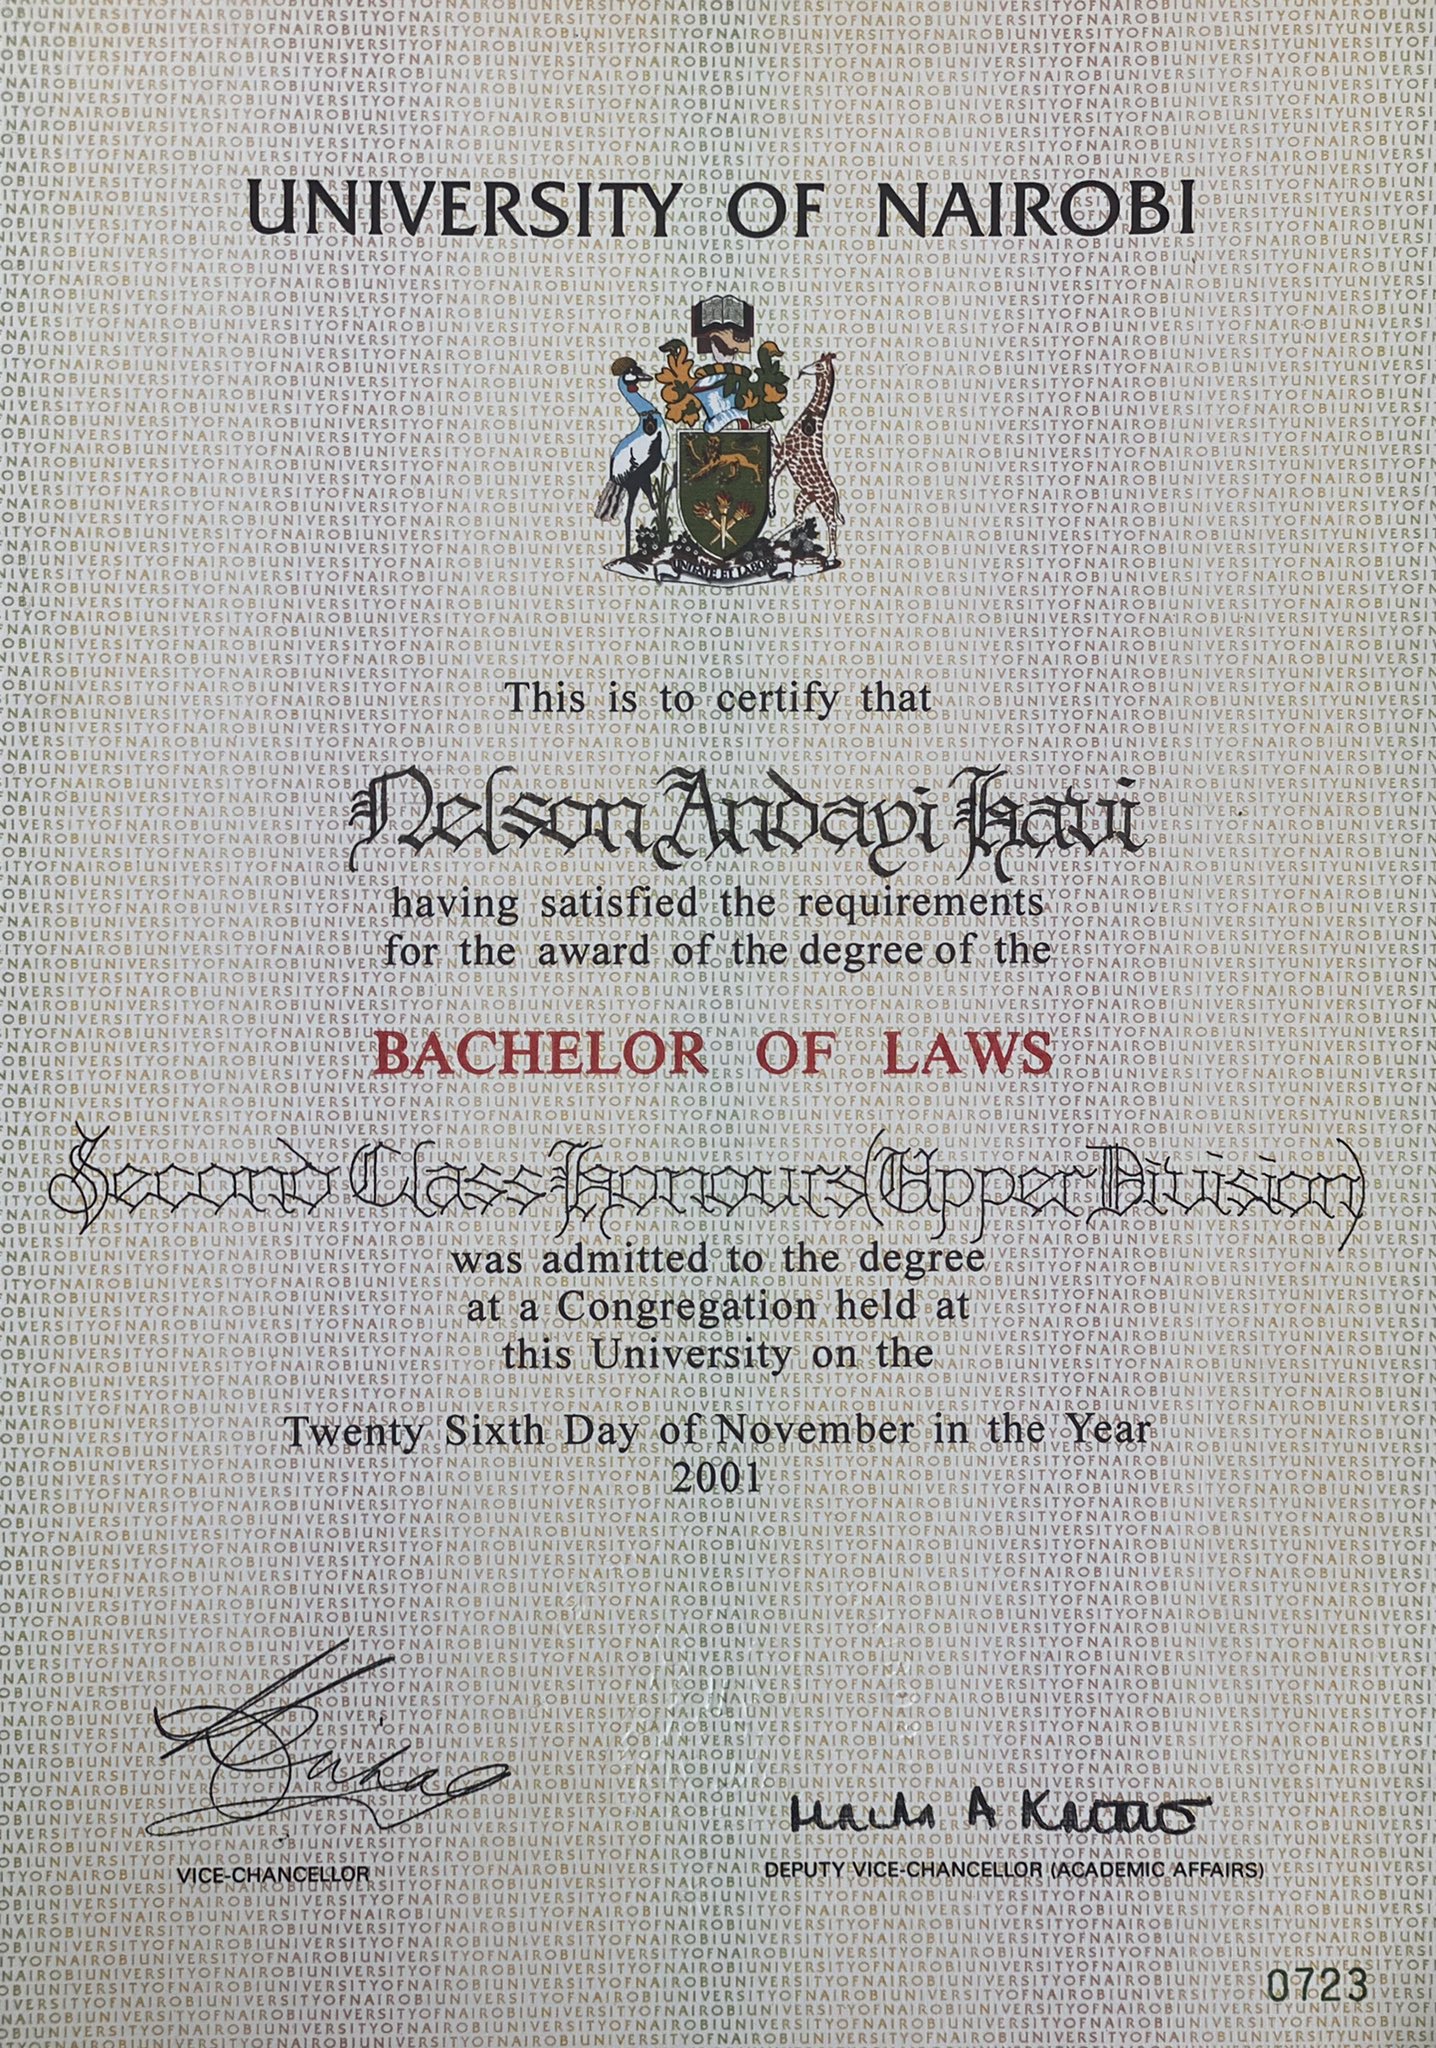 UNIVERSITY OF NAIROBI
UNITATE ET LABORE
This is to certify that
Nelson Andayi Havi
having satisfied the requirements
for the award of the degree of the
BACHELOR OF LAWS
Second Class Honours (Upper Division)
was admitted to the degree
at a Congregation held at
this University on the
Twenty Sixth Day of November in the Year
2001
VICE-CHANCELLOR
DEPUTY VICE-CHANCELLOR (ACADEMIC AFFAIRS)
0723